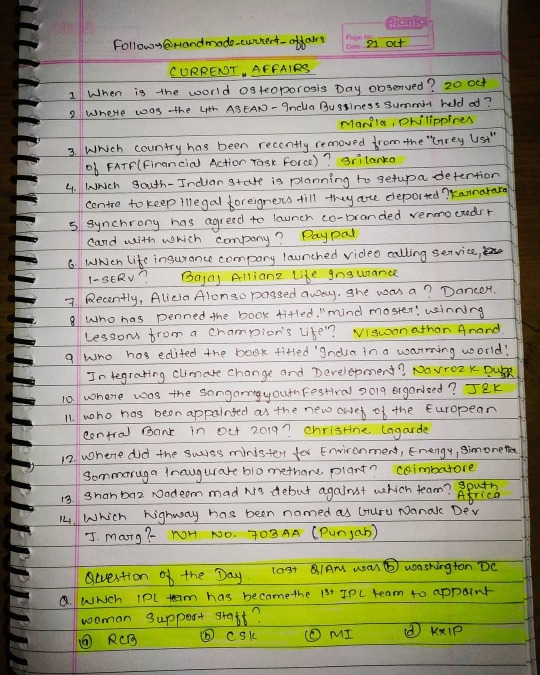 Ajanta
Page No.
Date 21 oct
Follow→@Handmade-current-affairs
CURRENT AFFAIRS
1 When is the world Osteoporosis Day observed? 20 oct
2 Where was the 4th ASEAN-India Bussiness Summit held at?
Manila, Philippines
3. Which country has been recently removed from the "Grey List"
of FATF(Financial Action Task Force)? Sri lanka
4. Which South-Indian state is planning to setup a detention
Centre to keep Illegal foreigners till they are deported? Karnataka
5 Synchrony has agreed to launch co-branded venmo credit
Card with which company? Paypal
6 Which life insurance company launched video calling service,
i-SERV? Bajaj Allianz Life Insurance
7. Recently, Alicia Alonso passed away. She was a? Dancer.
8 Who has penned the book titled."mind master: winning
Lessons from a champion's life"? Viswanathan Anand
9 Who has edited the book titled 'India in a warming world:
Integrating Climate Change and Development? Navroz K Dubash
10. where was the Sangamyouth Festival 2019 organised? J&K
11. who has been appointed as the new chief of the European
Central Bank in oct 2019? Christine lagarde
12. where did the Swiss minister for Environment, Energy, Simonetta
Sommaruga Inaugurate bio methane plant? Coimbatore
13 Shahbaz Nadeem mad his debut against which team? South
Africa
14. Which highway has been named as Guru Nanak Dev
J. marg?- NH No. 703AA (Punjab)
Question of the Day. last Q/Ans was (b) washington DC
Q. Which IPL team has became the 1st IPL team to appoint
woman Support staff?
(a) RCB (b) CSK (c) MI (d) KXIP